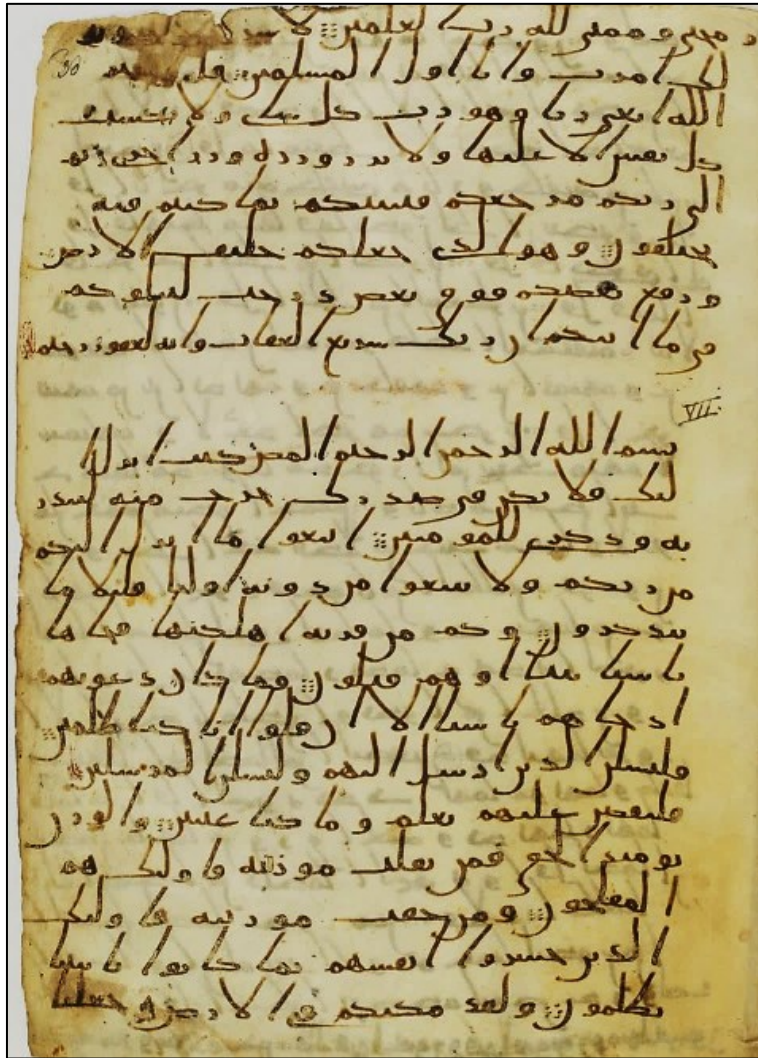 و محيي و ممتي لله رب العلمين لا
38
لك امرت و انا اول المسلمين قل
الله ابغي ربا و هو رب كل شي ولا تكسب
كل نفس الا عليها ولا تزر وزره وزر اخرى ثم
الى ربكم مرجعكم فينبئكم بما كنتم فيه
تختلفون وهو الذي جعلكم خلئف الارض
ورفع بعضكم فوق بعض درجت ليبلوكم
في ما اتيكم ان ربك سريع العقاب وانه لغفور رحيم
VII.
بسم الله الرحمن الرحيم المص كتب انزل ا
ليك فلا يكن في صدرك حرج منه لتنذر
به وذكرى للمومنين اتبعوا ما انزل اليكم
من ربكم ولا تتبعوا من دونه اوليا قليلا ما
تتذكرون وكم من قرية اهلكنها فجاها
باسنا بيتا او هم قيلون فما كان دعويهم
اذ جاهم باسنا الا ان قلوا انا كنا ظلمين
فلنسلن الذين ارسل اليهم ولنسلن المرسلين
فلنقصن عليهم بعلم وما كنا غيبين والوزن
يومئذ الحق فمن ثقلت موزينه فاوليك هم
المفلحون ومن خفت موزينه فاوليك
الذين خسروا انفسهم بما كانوا باييتنا
يظلمون ولقد مكنكم في الارض وجعلنا